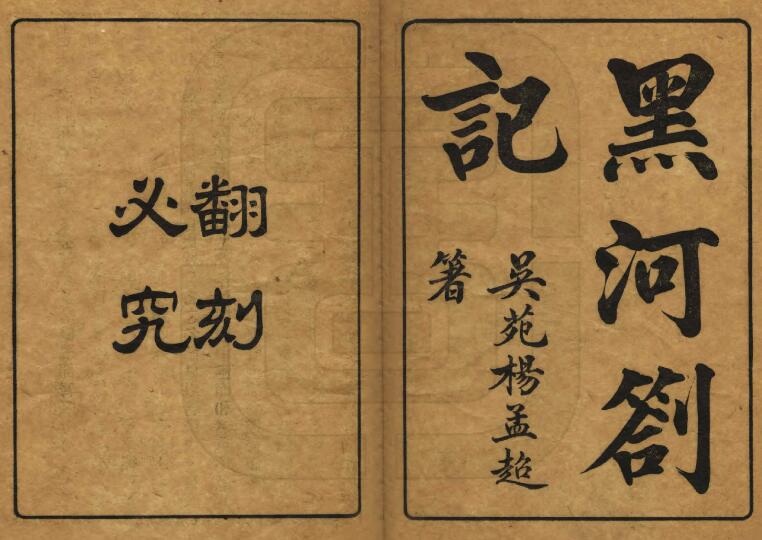 黑河劄
記
吳苑楊孟超
箸
翻刻
必究